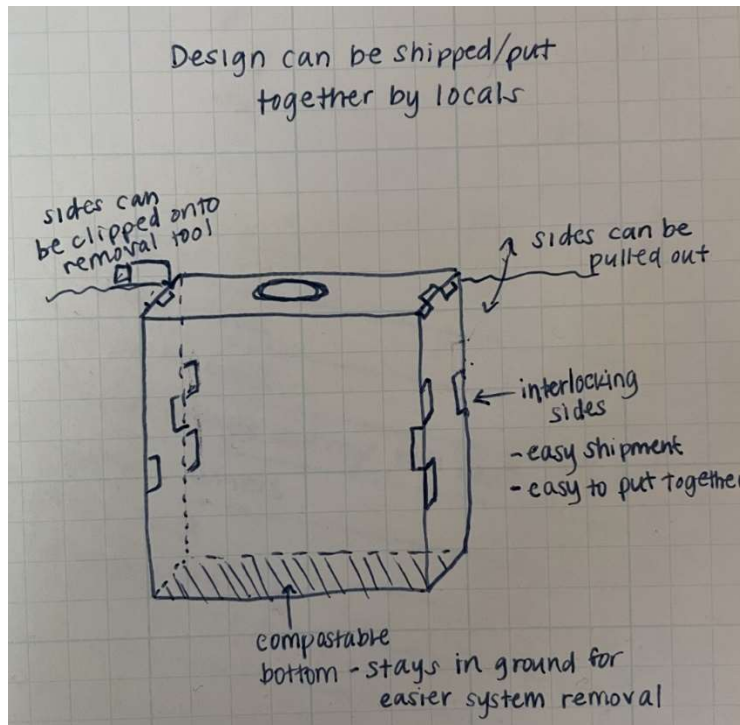 Design can be shipped/put
together by locals
sides can
be clipped onto
removal tool
sides can be
pulled out
interlocking
sides
-easy shipment
-easy to put together
compastable
bottom - stays in ground for
easier system removal